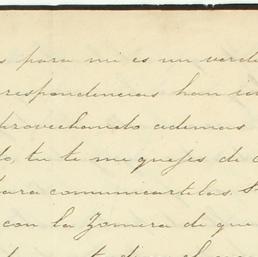 s para mi es un verd
respondencias han si
aprovechando ademas
do, tu te me quejes de
para comunicartelas. S
con la Zomera de que